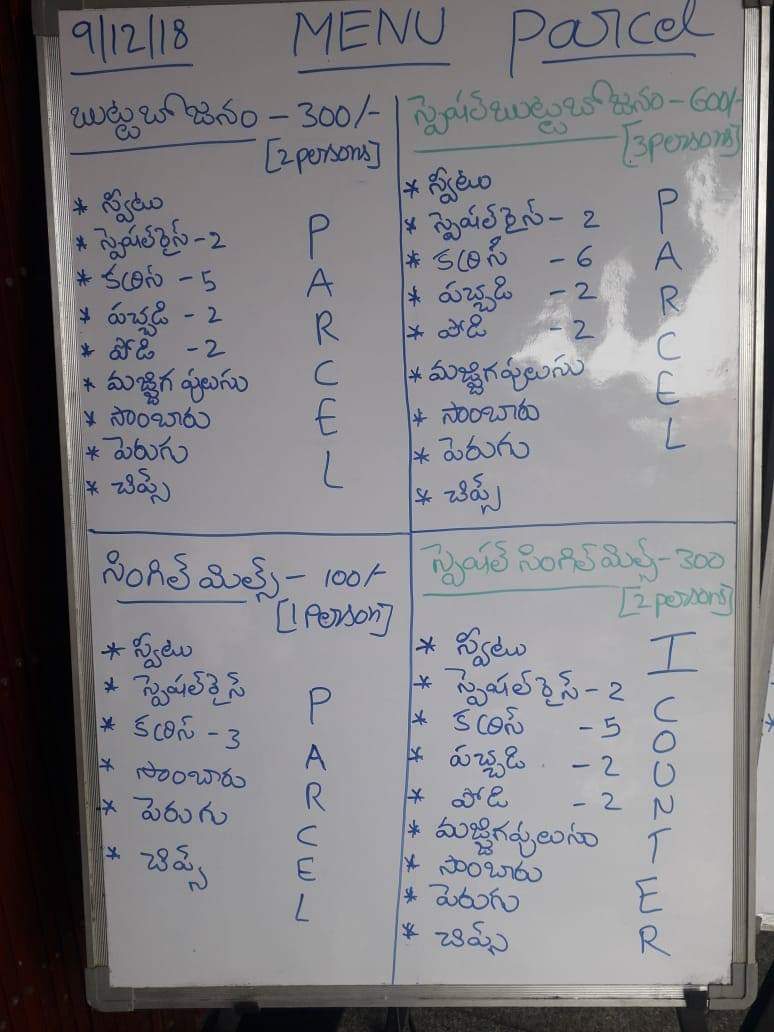 9/12/18 MENU Parcel
బుట్టబోజనం - 300/-
[2 persons]
* స్వీటు
* స్పెషల్ రైస్ - 2
* కర్రీస్ - 5
* పచ్చడి - 2
* పోడి - 2
* మజ్జిగ పులుసు
* సాంబారు
* పెరుగు
* చిప్స్
PARCEL
స్పెషల్ బుట్టబోజనం - 600/-
[3 persons]
* స్వీటు
* స్పెషల్ రైస్ - 2
* కర్రీస్ - 6
* పచ్చడి - 2
* పోడి - 2
* మజ్జిగపులుసు
* సాంబారు
* పెరుగు
* చిప్స్
PARCEL
సింగిల్ మిల్స్ - 100/-
[1 Person]
* స్వీటు
* స్పెషల్ రైస్
* కర్రీస్ - 3
* సాంబారు
* పెరుగు
* చిప్స్
PARCEL
స్పెషల్ సింగిల్ మిల్స్ - 300
[2 persons]
* స్వీటు
* స్పెషల్ రైస్ - 2
* కర్రీస్ - 5
* పచ్చడి - 2
* పోడి - 2
* మజ్జిగపులుసు
* సాంబారు
* పెరుగు
* చిప్స్
I COUNTER